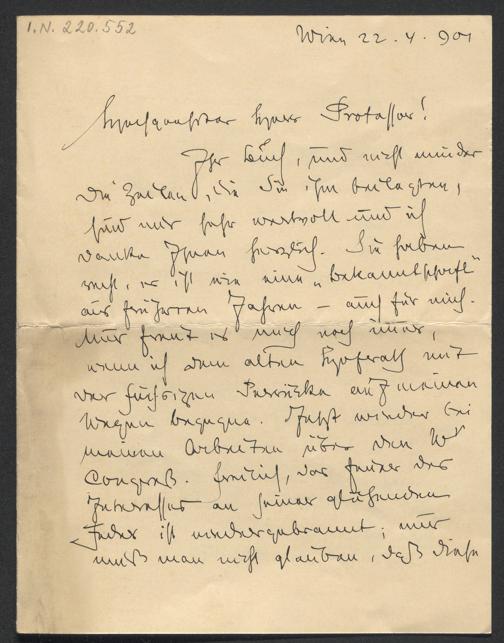 I.N. 220.552
Wien 22.4.901
Hochgeehrter Herr Professor!
Ihr Buch, und nicht minder
die Zeilen, die Sie ihm beilegten,
sind mir sehr wertvoll und ich
danke Ihnen herzlich. Sie haben
recht, es ist wie eine „Bekanntschaft"
aus früheren Jahren – auch für mich.
Mich freut es auch noch immer,
wenn ich dem alten Hofrath mit
der Perrücke auf meinen
Wegen begegne. Jetzt wieder bei
meinen Arbeiten über den Wr
Congreß. Freilich, das Feuer des
Interesses an seiner glühenden
Feder ist niedergebrannt; nur
muß man nicht glauben, daß diese